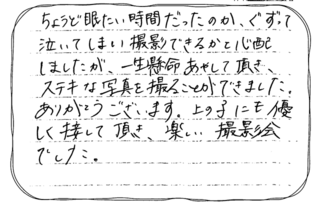 ちょうど眠たい時間だったのか、ぐずって
泣いてしまい撮影できるかと心配
しましたが、一生懸命あやして頂き、
ステキな写真を撮ることができました。
ありがとうございます。上の子にも優
しく接して頂き、楽しい撮影会
でした。